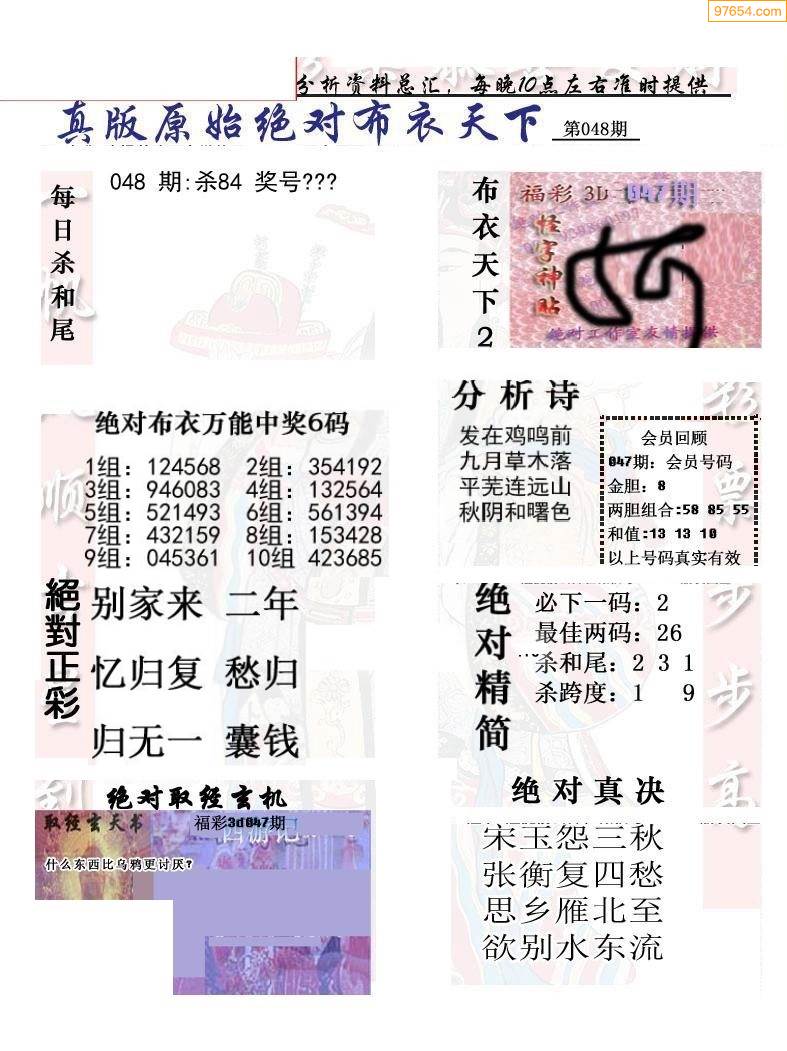 97654.com
分析资料总汇，每晚10点左右准时提供
真版原始绝对布衣天下 第048期
每日杀和尾
048 期:杀84 奖号???
布衣天下2
福彩 3D 047期
怪字神贴
绝对布衣万能中奖6码
1组：124568 2组：354192
3组：946083 4组：132564
5组：521493 6组：561394
7组：432159 8组：153428
9组：045361 10组 423685
分析诗
发在鸡鸣前
九月草木落
平芜连远山
秋阴和曙色
会员回顾
047期：会员号码
金胆：8
两胆组合:58 85 55
和值:13 13 10
以上号码真实有效
絕對正彩
别家来 二年
忆归复 愁归
归无一 囊钱
绝对精简
必下一码：2
最佳两码：26
杀和尾：2 3 1
杀跨度：1 9
绝对取经玄机
取经玄天书 福彩3d047期
什么东西比乌鸦更讨厌?
绝对真决
宋玉怨三秋
张衡复四愁
思乡雁北至
欲别水东流